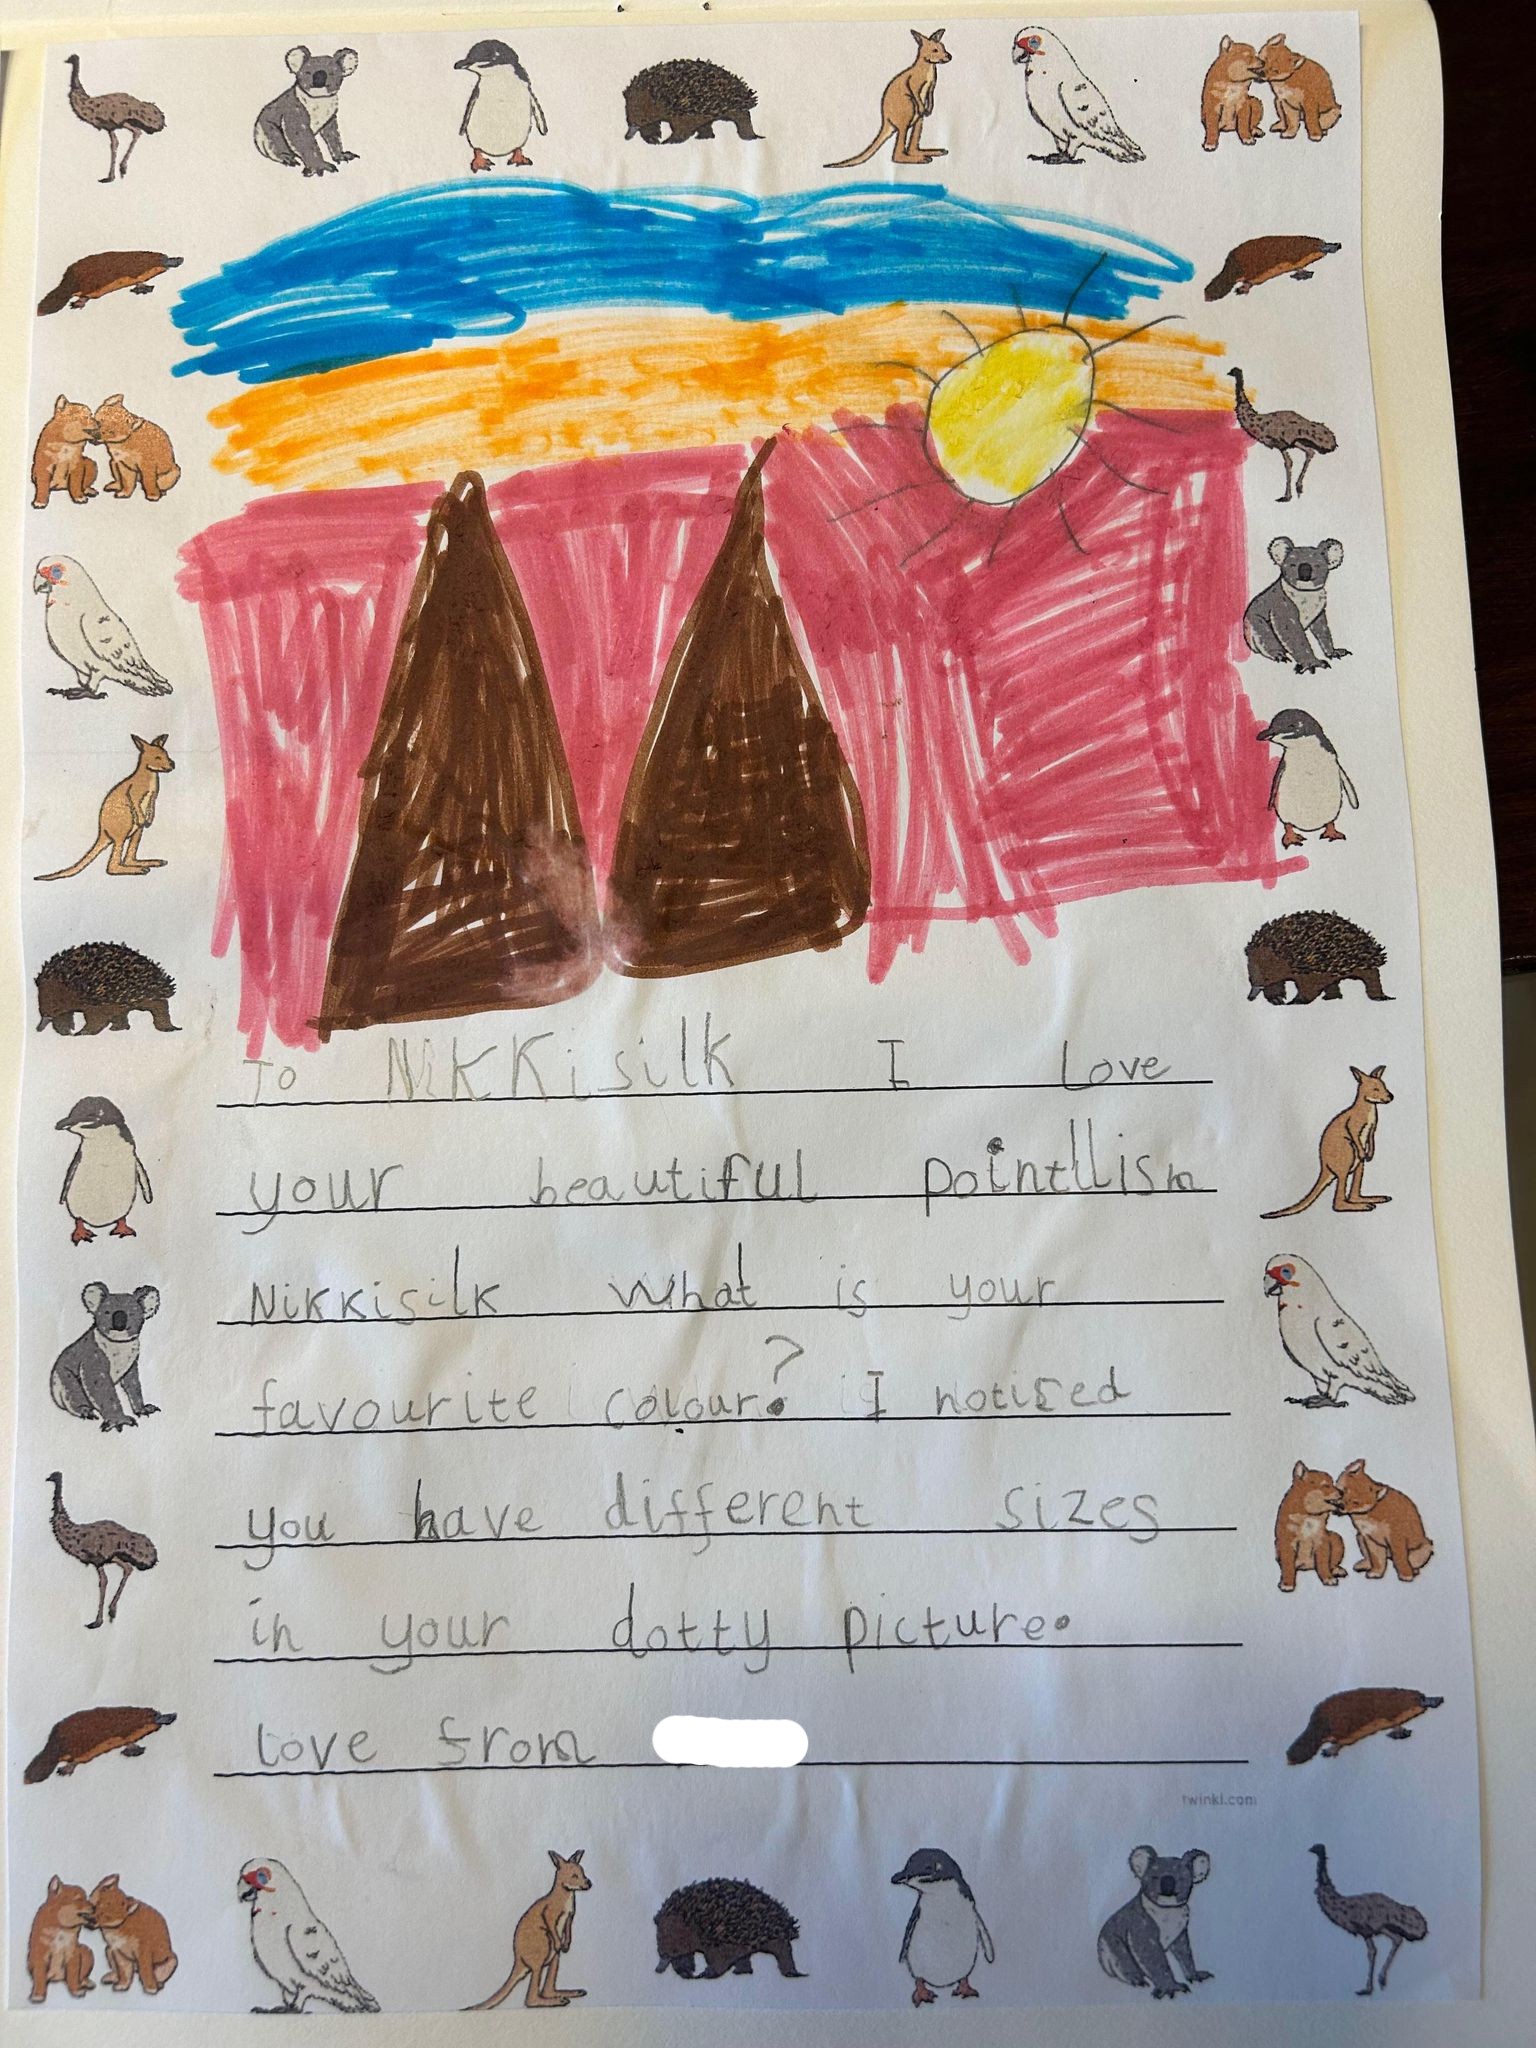 To Nikkisilk I Love
your beautiful pointllism
Nikkisilk what is your
favourite colour? I notised
you have different sizes
in your dotty picture.
love from
twinkl.com